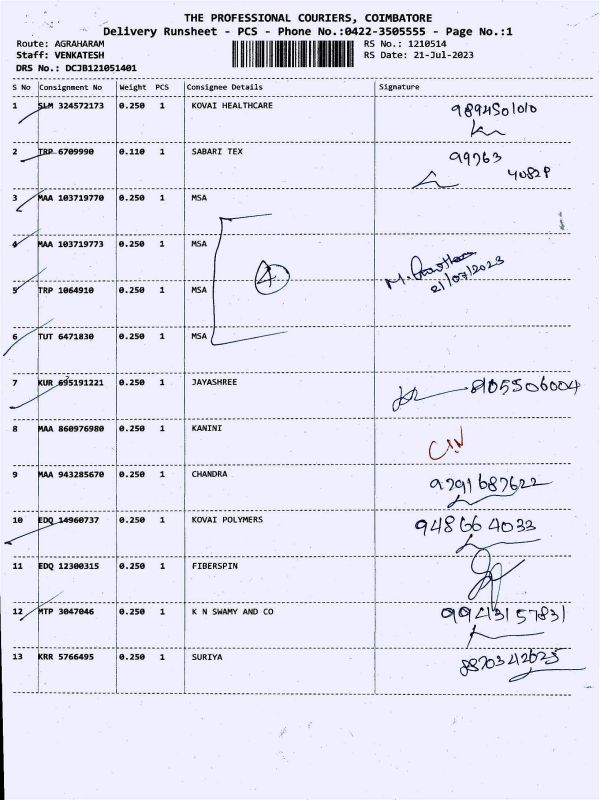 THE PROFESSIONAL COURIERS, COIMBATORE
Delivery Runsheet - PCS - Phone No.:0422-3505555 - Page No.:1
Route: AGRAHARAM RS No.: 1210514
Staff: VENKATESH RS Date: 21-Jul-2023
DRS No.: DCJB121051401
S No Consignment No Weight PCS Consignee Details Signature
1 SLM 324572173 0.250 1 KOVAI HEALTHCARE 9894501010
2 TRP 6709990 0.110 1 SABARI TEX 99763
3 MAA 103719770 0.250 1 MSA
4 MAA 103719773 0.250 1 MSA
4
21/07/2023
5 TRP 1064910 0.250 1 MSA
6 TUT 6471830 0.250 1 MSA
7 KUR 695191221 0.250 1 JAYASHREE 8105506004
8 MAA 860976980 0.250 1 KANINI
9 MAA 943285670 0.250 1 CHANDRA 9791687622
10 EDQ 14960737 0.250 1 KOVAI POLYMERS 948664033
11 EDQ 12300315 0.250 1 FIBERSPIN
12 MTP 3047046 0.250 1 K N SWAMY AND CO 9943157831
13 KRR 5766495 0.250 1 SURIYA 8870342625